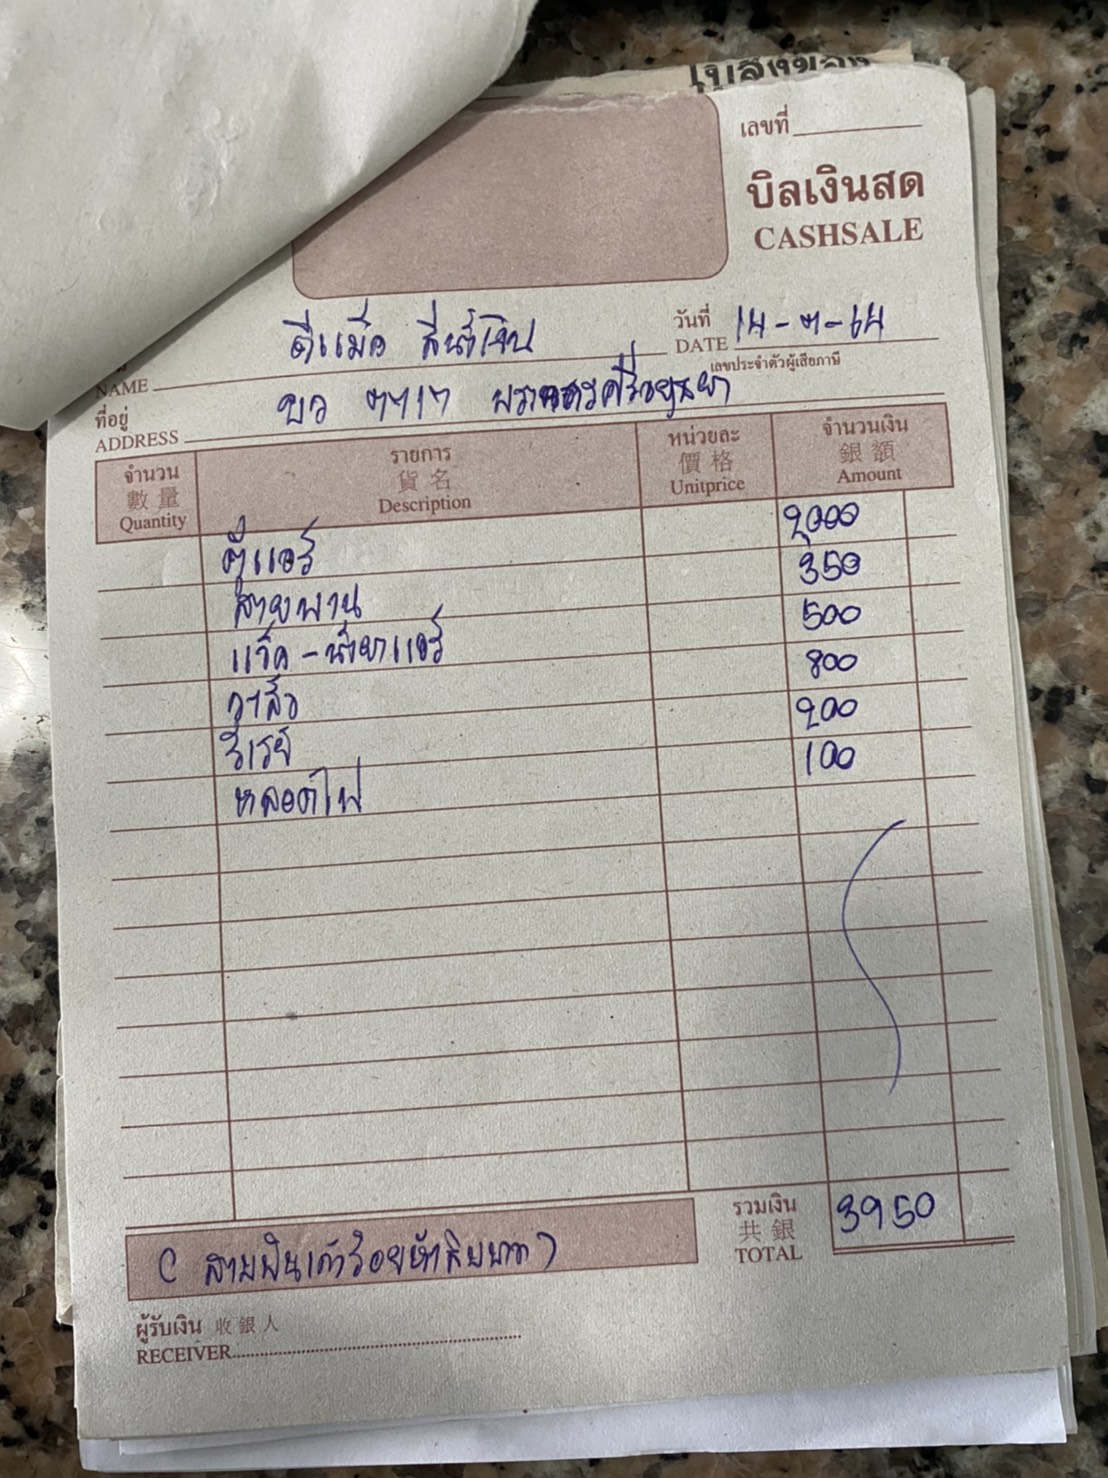 ใบส่งของ
เลขที่
บิลเงินสด
CASHSALE
วันที่
DATE 14-7-64
NAME ดีแม็ค สีน้ำเงิน
เลขประจำตัวผู้เสียภาษี
ที่อยู่
ADDRESS บว 7717 พระนครศรีอยุธยา
จำนวน รายการ หน่วยละ จำนวนเงิน
數量 貨名 價格 銀額
Quantity Description Unitprice Amount
ตู้แอร์ 2,000
สายพาน 350
แว็ค-น้ำยาแอร์ 500
วาล์ว 800
รีเรย์ 200
หลอดไฟ 100
รวมเงิน
共銀
TOTAL 3950
(สามพันเก้าร้อยห้าสิบบาท)
ผู้รับเงิน 收銀人
RECEIVER